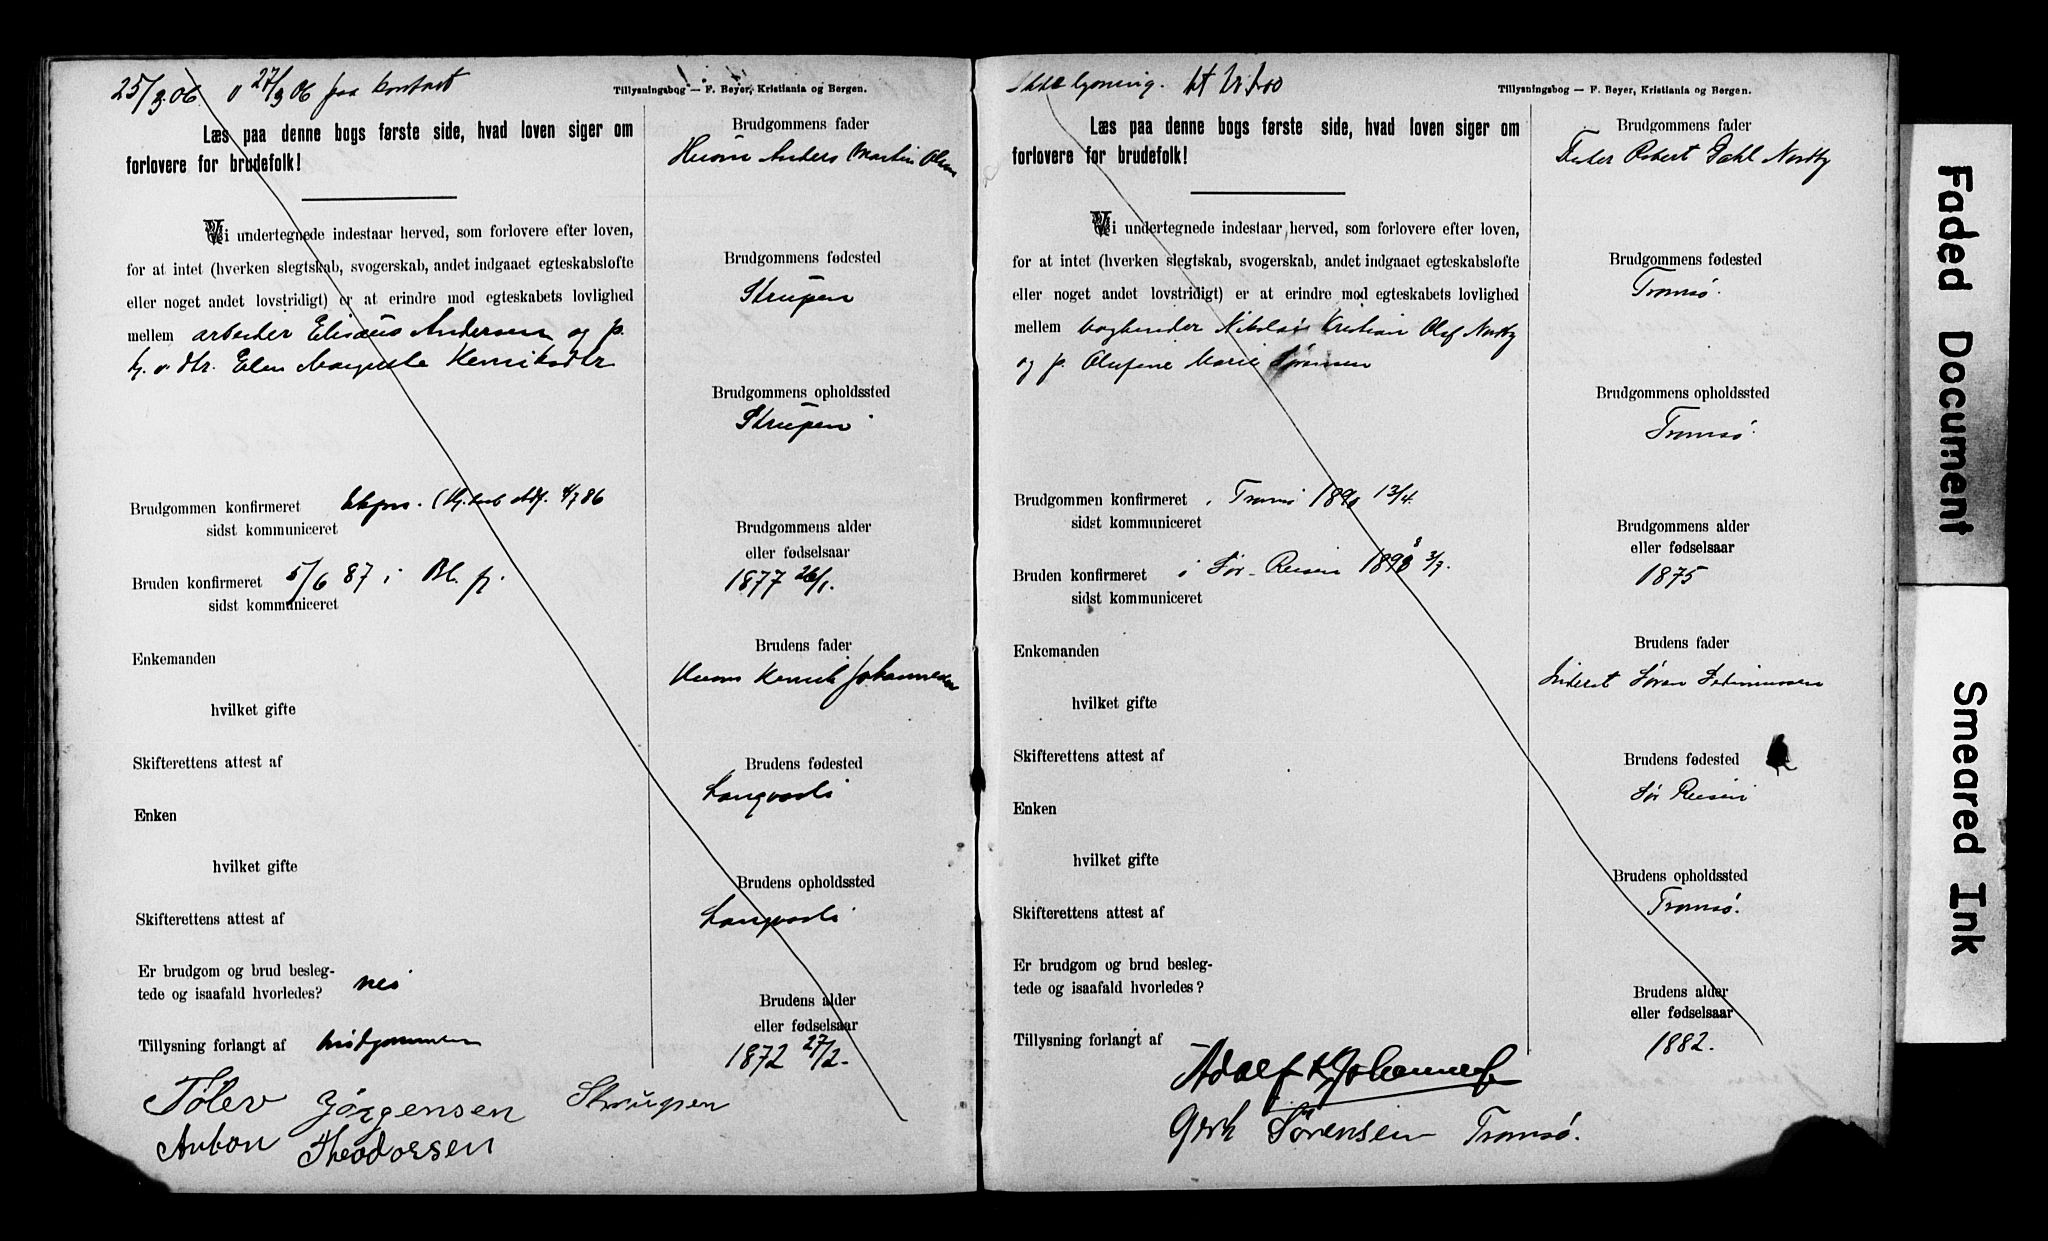 25/3.06. v 27/3 06 paa kontoret
Tillysningsbog — F. Beyer, Kristiania og Bergen.
Læs paa denne bogs første side, hvad loven siger om
forlovere for brudefolk!
Vi undertegnede indestaar herved, som forlovere efter loven,
for at intet (hverken slegtskab, svogerskab, andet indgaaet egteskabsløfte
eller noget andet lovstridigt) er at erindre mod egteskabets lovlighed
mellem arbeider Elisæus Andersen og p.
Henriksdtr
Brudgommen konfirmeret 86
sidst kommuniceret
Bruden konfirmeret 5/6 87 i
sidst kommuniceret
Enkemanden
hvilket gifte
Skifterettens attest af
Enken
hvilket gifte
Skifterettens attest af
Er brudgom og brud besleg-
tede og isaafald hvorledes? nei
Tillysning forlangt af brudgommen
Tølev Jørgensen Strupen
Anton Theodorsen
Brudgommens fader
Anders Martin Olsen
Brudgommens fødested
Strupen
Brudgommens opholdssted
Strupen
Brudgommens alder
eller fødselsaar
1877 26/1.
Brudens fader
Henrik Johannesen
Brudens fødested
Brudens opholdssted
Brudens alder
eller fødselsaar
1872 27/2.
lysning.
Tillysningsbog — F. Beyer, Kristiania og Bergen.
Læs paa denne bogs første side, hvad loven siger om
forlovere for brudefolk!
Vi undertegnede indestaar herved, som forlovere efter loven,
for at intet (hverken slegtskab, svogerskab, andet indgaaet egteskabsløfte
eller noget andet lovstridigt) er at erindre mod egteskabets lovlighed
mellem bogbinder Nikolai Kristian Olaf Nordby
og p. Olufine Marie Sørensen
Brudgommen konfirmeret i Tromsø 1890 13/4.
sidst kommuniceret
Bruden konfirmeret i Sør-Reisen 1898 3/7.
sidst kommuniceret
Enkemanden
hvilket gifte
Skifterettens attest af
Enken
hvilket gifte
Skifterettens attest af
Er brudgom og brud besleg-
tede og isaafald hvorledes?
Tillysning forlangt af
Adolf
Sørensen Tromsø.
Brudgommens fader
Robert Dahl Nordby
Brudgommens fødested
Tromsø.
Brudgommens opholdssted
Tromsø.
Brudgommens alder
eller fødselsaar
1875
Brudens fader
Søren
Brudens fødested
Sør Reisen
Brudens opholdssted
Tromsø.
Brudens alder
eller fødselsaar
1882.
Faded Document
Smeared Ink